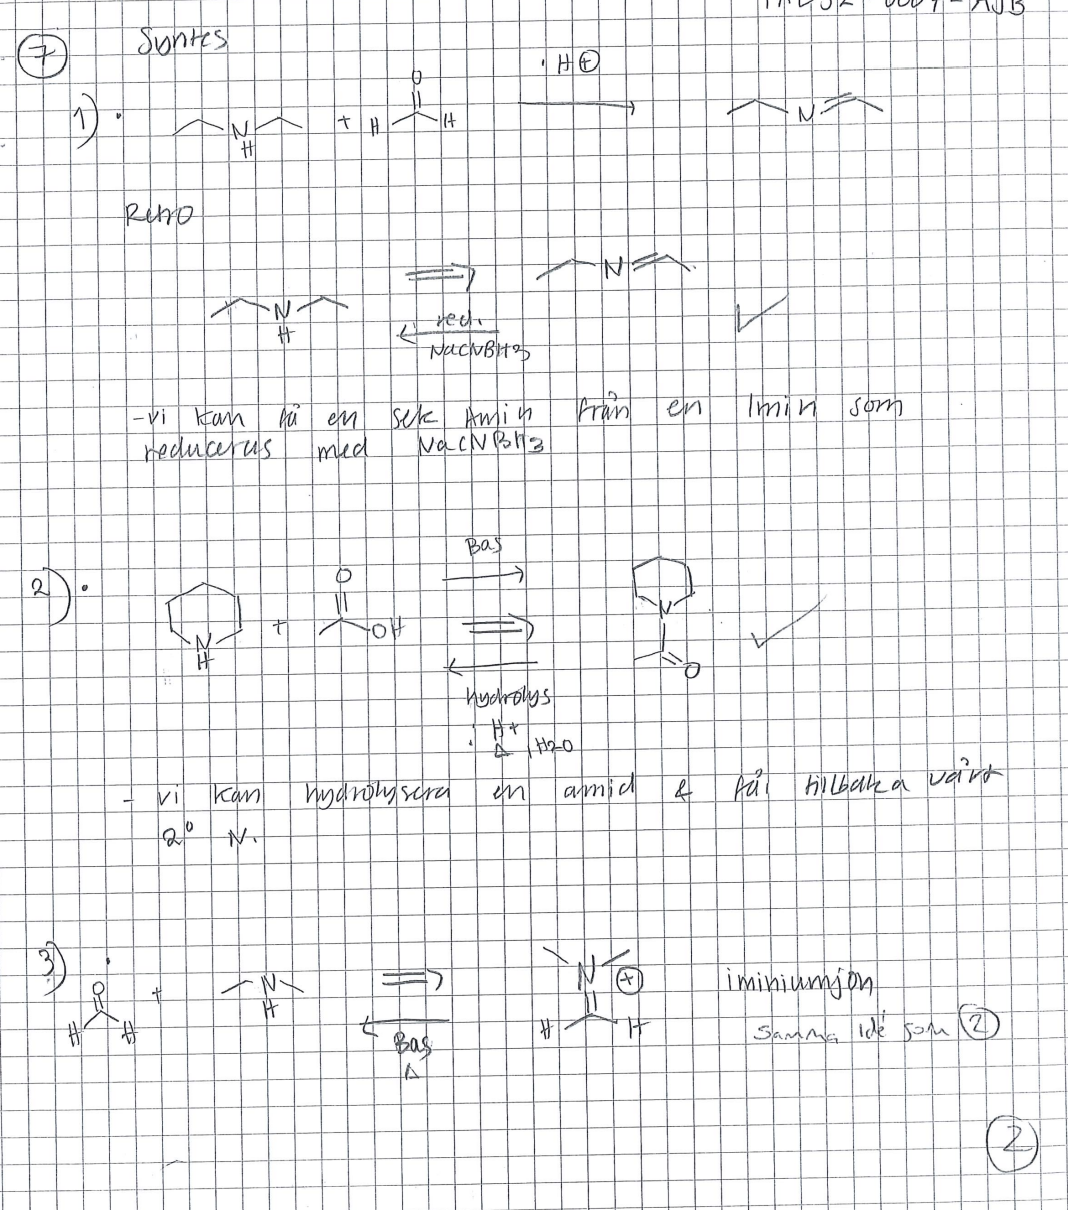 7
Syntes
1)
N
H
+
O
H
H
H⊕
N
Retro
N
H
red.
NaCNBH3
N
-vi kan få en sek Amin från en Imin som
reduceras med NaCNBH3
2)
N
H
+
O
OH
Bas
hydrolys
H+
Δ, H2O
N
O
- vi kan hydrolysera en amid & får tillbaka vårt
2° N.
3)
O
H
H
+
N
H
Bas
Δ
N
⊕
H
H
iminiumjon
samma idé som 2
2